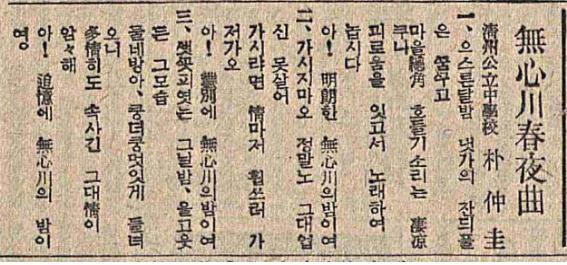 無心川春夜曲
淸州公立中學校 朴仲圭
一、으스른달밤 냇가의 잔듸풀
은 꿈꾸고
마을總角 호들기소리는 凄凉
쿠나
괴로움을 잇고서 노래하여
놉시다
아! 明朗한 無心川의밤이여
二、가시지마오 정말노 그대업
신 못살어
가시라면 情마저 휩쓰러 가
저가오
아! 離別에 無心川의밤이여
三、꼿피엿든 그날밤、울고웃
든 그모습
물네방아、쿵더쿵멋잇게 들녀
오니
多情히도 속사긴 그대情이
암々해
아! 追憶에 無心川의 밤이
여